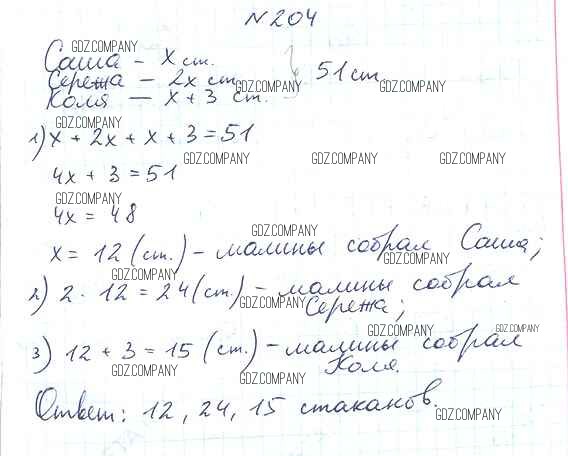 N 204
GDZ.COMPANY
Саша - x ст.
GDZ.COMPANY
Сережа - 2x ст. GDZ.COMPANY 51 ст. GDZ.COMPANY
Коля - x + 3 ст.
GDZ.COMPANY
1) x + 2x + x + 3 = 51
GDZ.COMPANY GDZ.COMPANY GDZ.COMPANY
4x + 3 = 51
GDZ.COMPANY
4x = 48
GDZ.COMPANY
x = 12 (ст.) - малины собрал Саша;
GDZ.COMPANY GDZ.COMPANY
2) 2 · 12 = 24 (ст.) - малины собрал
GDZ.COMPANY Сережа;
GDZ.COMPANY GDZ.COMPANY
3) 12 + 3 = 15 (ст.) - малины собрал
GDZ.COMPANY GDZ.COMPANY Коля.
Ответ: 12, 24, 15 стаканов.
GDZ.COMPANY